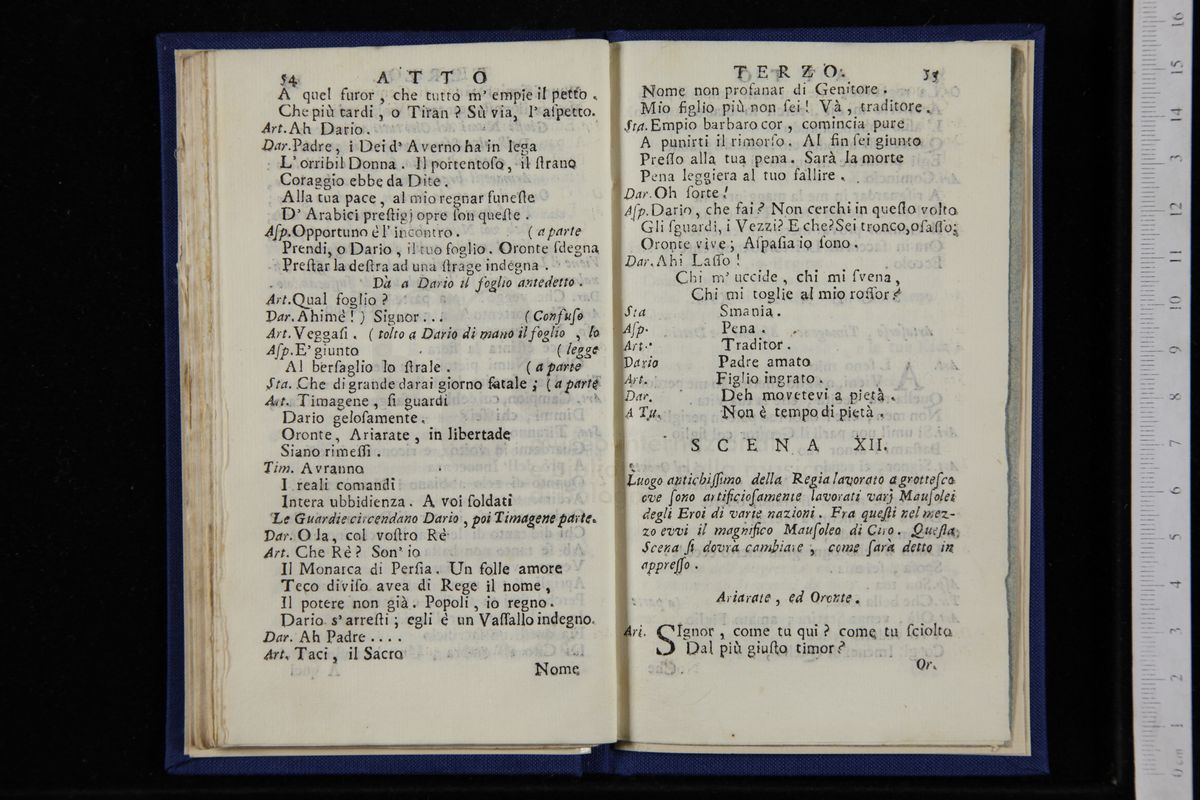 54 ATTO
A quel furor, che tutto m' empie il petto.
Che più tardi, o Tiran? Sù via, l' aſpetto.
Art. Ah Dario.
Dar. Padre, i Dei d' Averno ha in lega
L' orribil Donna. Il portentoſo, il ſtrano
Coraggio ebbe da Dite.
Alla tua pace, al mio regnar funeſte
D' Arabici preſtigj opre ſon queſte.
Aſp. Opportuno è l' incontro. (a parte
Prendi, o Dario, il tuo foglio. Oronte ſdegna
Preſtar la deſtra ad una ſtrage indegna.
Dà a Dario il foglio antedetto.
Art. Qual foglio?
Dar. Ahimè!) Signor... (Confuſo
Art. Veggaſi. (tolto a Dario di mano il foglio, lo
Aſp. E' giunto (legge
Al berſaglio lo ſtrale. (a parte
Sta. Che di grande darai giorno fatale; (a parte
Art. Timagene, ſi guardi
Dario geloſamente.
Oronte, Ariarate, in libertade
Siano rimeſſi.
Tim. Avranno
I reali comandi
Intera ubbidienza. A voi ſoldati
Le Guardie circondano Dario, poi Timagene parte.
Dar. O la, col voſtro Rè
Art. Che Rè? Son' io
Il Monarca di Perſia. Un folle amore
Teco diviſo avea di Rege il nome,
Il potere non già. Popoli, io regno.
Dario s' arreſti; egli è un Vaſſallo indegno.
Dar. Ah Padre....
Art. Taci, il Sacro
Nome
TERZO. 55
Nome non profanar di Genitore.
Mio figlio più non ſei! Và, traditore.
Sta. Empio barbaro cor, comincia pure
A punirti il rimorſo. Al fin ſei giunto
Preſſo alla tua pena. Sarà la morte
Pena leggiera al tuo fallire.
Dar. Oh ſorte!
Aſp. Dario, che fai? Non cerchi in queſto volto
Gli ſguardi, i Vezzi? E che? Sei tronco, o ſaſſo;
Oronte vive; Aſpaſia io ſono.
Dar. Ahi Laſſo!
Chi m' uccide, chi mi ſvena,
Chi mi toglie al mio roſſor?
Sta Smania.
Aſp. Pena.
Art. Traditor.
Dario Padre amato
Art. Figlio ingrato.
Dar. Deh movetevi a pietà.
A Tu. Non è tempo di pietà.
SCENA XII.
Luogo antichiſſimo della Regia lavorato a grotteſco
ove ſono artificioſamente lavorati varj Mauſolei
degli Eroi di varie nazioni. Fra queſti nel mez-
zo evvi il magnifico Mauſoleo di Ciro. Queſta
Scena ſi dovrà cambiare, come ſarà detto in
appreſſo.
Ariarate, ed Oronte.
Ari. SIgnor, come tu qui? come tu ſciolto
Dal più giuſto timor?
Or.
16
15
14
13
12
11
10
9
8
7
6
5
4
3
2
1
0 cm